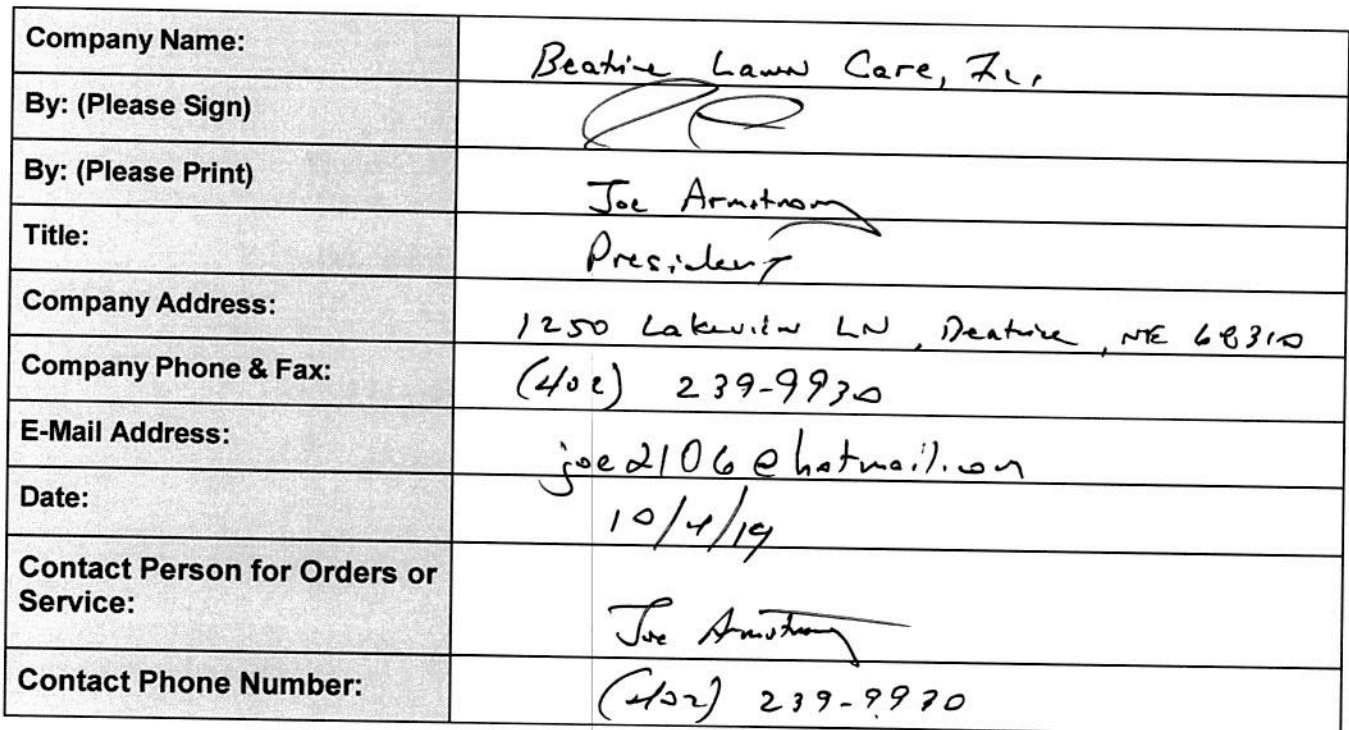 Company Name: Beatrice Lawn Care, Inc.
By: (Please Sign)
By: (Please Print) Joe Armstrong
Title: President
Company Address: 1250 Lakeview LN, Beatrice, NE 68310
Company Phone & Fax: (402) 239-9930
E-Mail Address: joe2106@hotmail.com
Date: 10/4/19
Contact Person for Orders or
Service: Joe Armstrong
Contact Phone Number: (402) 239-9930